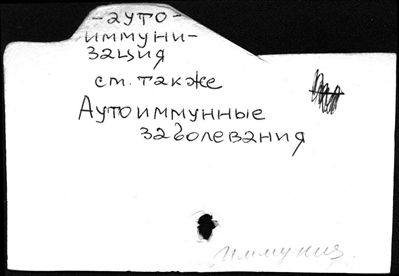 -ауто-
иммуни-
зация
см. также
Аутоиммунные
заболевания